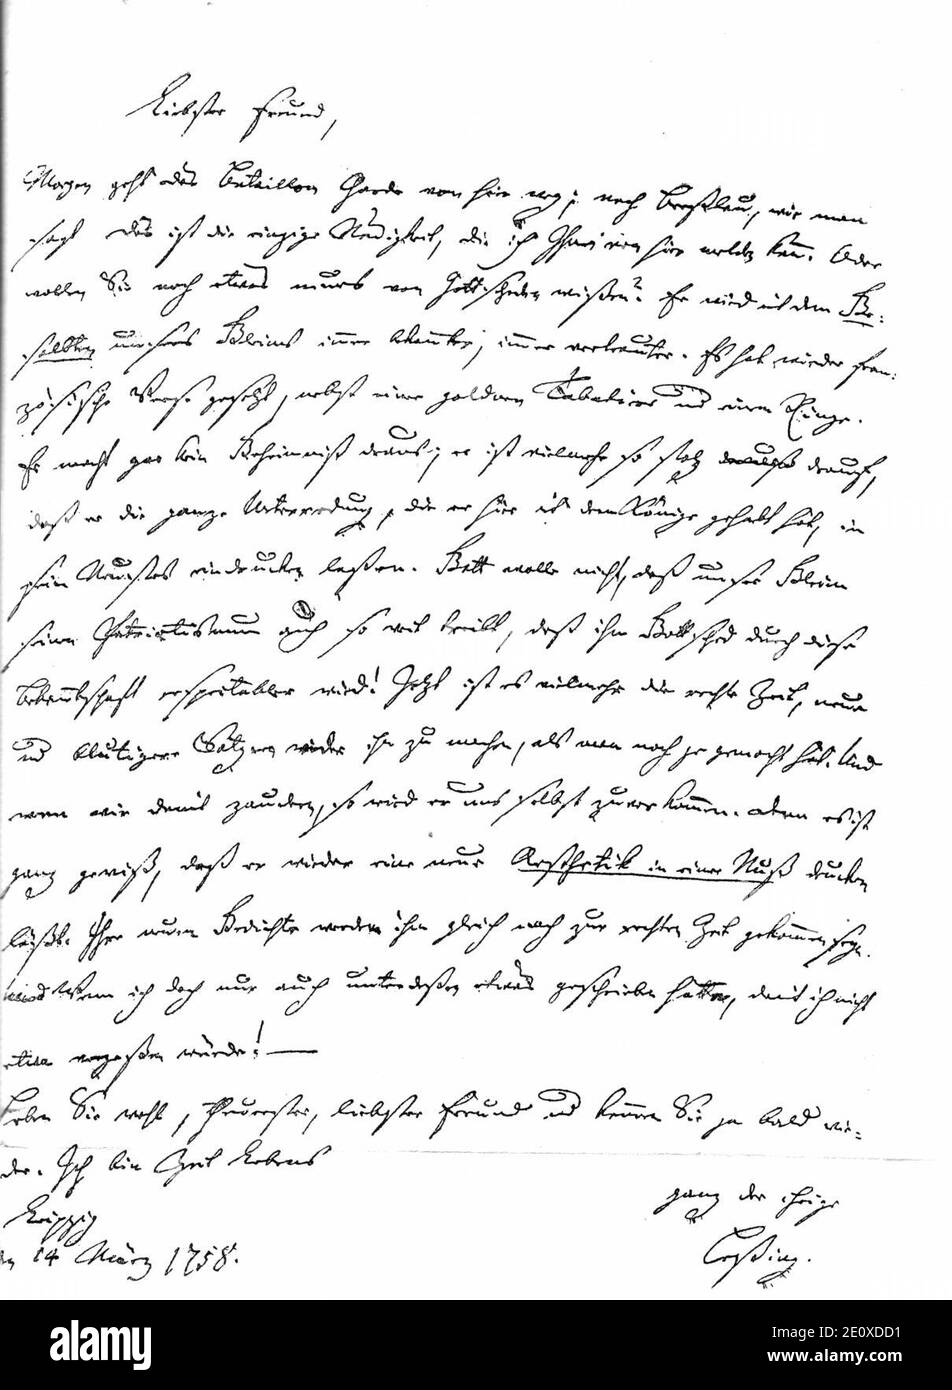 Liebster Freund,
Morgen geht das Bataillon Garde von hier weg; nach Breßlau, wie man
sagt. Das ist die einzige Neuigkeit, die ich Ihnen von hier melden kann. Oder
wollen Sie noch etwas neues von Gottscheden wißen? Er wird mit dem Be-
selbten unsers Kleins immer bekannter, immer vertrauter. Er hat wieder fran-
zösische Verse gesetzt, nebst einer goldnen Tabatiere und einem Ringe.
Er macht gar kein Geheimniß draus; er ist vielmehr so stolz drauf,
daß er die ganze Unterredung, die er hier mit dem Könige gehabt hat, in
sein Neustes eindrucken laßen. Gott wolle nicht, daß unser Kleim
seinen Patriotismum auch so weit treibt, daß ihm Gottsched durch diese
Bekanntschaft respectabler wird! Jetzt ist es vielmehr die rechte Zeit, neue
und blutigere Satyren wieder ihn zu machen, als man noch je gemacht hat. Und
wenn wir damit zaudern, so wird er uns selbst zuvorkommen. Denn es ist
ganz gewiß, daß er wieder eine neue Aesthetik in einer Nuß drucken
läßt. Ihre neuen Gedichte werden ihm gleich noch zur rechten Zeit gekommen seyn.
Wenn ich doch nur auch unterdeßen etwas geschrieben hätte, damit ich nicht
etwa vergeßen würde! —
Leben Sie wohl, theuerster, liebster Freund und kommen Sie ja bald wie-
der. Ich bin Zeit Lebens
ganz der Ihrige
Leipzig
den 14 März 1758.
Leßing.
alamy
Image ID: 2E0XDD1
www.alamy.com